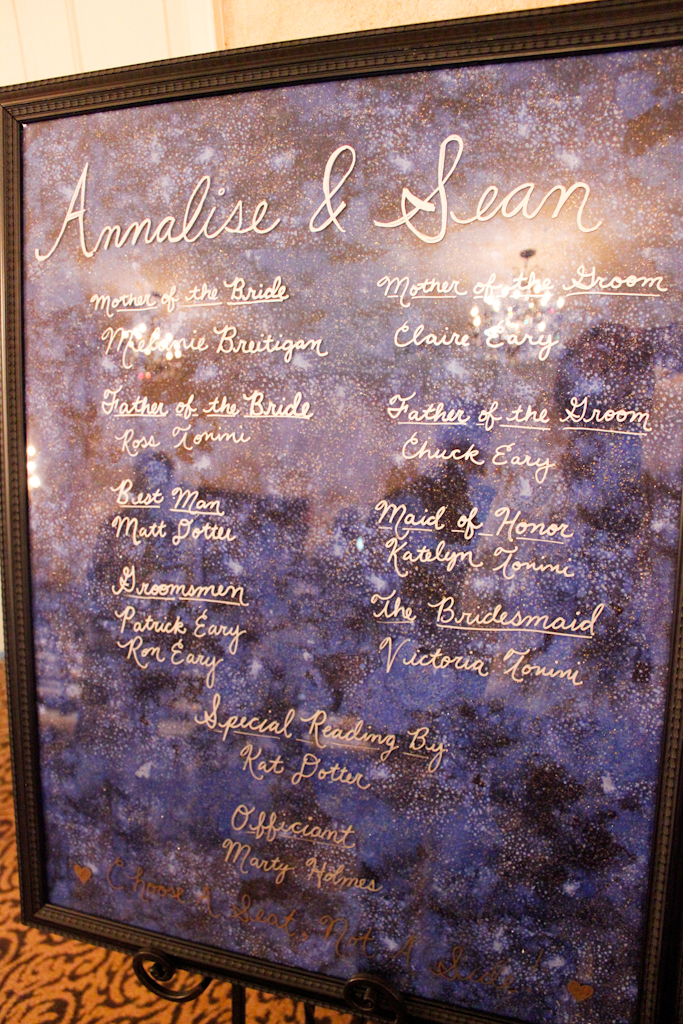 Annalise & Sean
Mother of the Bride
Melanie Breitigan
Father of the Bride
Ross Tonini
Best Man
Matt Dotter
Groomsmen
Patrick Eary
Ron Eary
Mother of the Groom
Claire Eary
Father of the Groom
Chuck Eary
Maid of Honor
Katelyn Tonini
The Bridesmaid
Victoria Tonini
Special Reading By
Kat Dotter
Officiant
Marty Holmes
Choose A Seat, Not A Side!